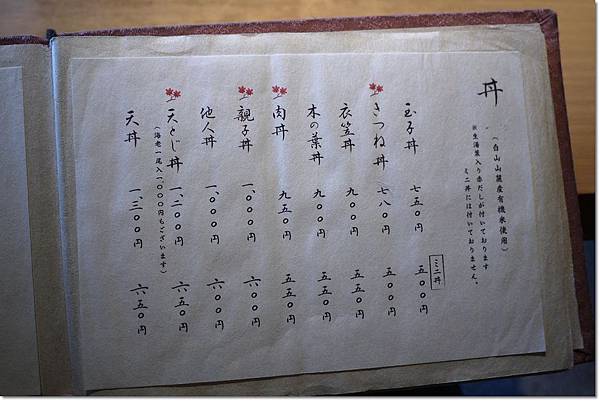 丼
(白山山麓産有機米使用)
※生湯葉入り赤だしが付いております
ミニ丼には付いておりません。
ミニ丼
玉子丼 七五〇円 五〇〇円
きつね丼 七八〇円 五〇〇円
衣笠丼 九〇〇円 五五〇円
木の葉丼 九〇〇円 五五〇円
肉丼 九五〇円 五五〇円
親子丼 一、〇〇〇円 六〇〇円
他人丼 一、〇〇〇円 六〇〇円
天とじ丼 一、二〇〇円 六五〇円
(海老一尾入一、〇〇〇円もございます)
天丼 一、三〇〇円 六五〇円